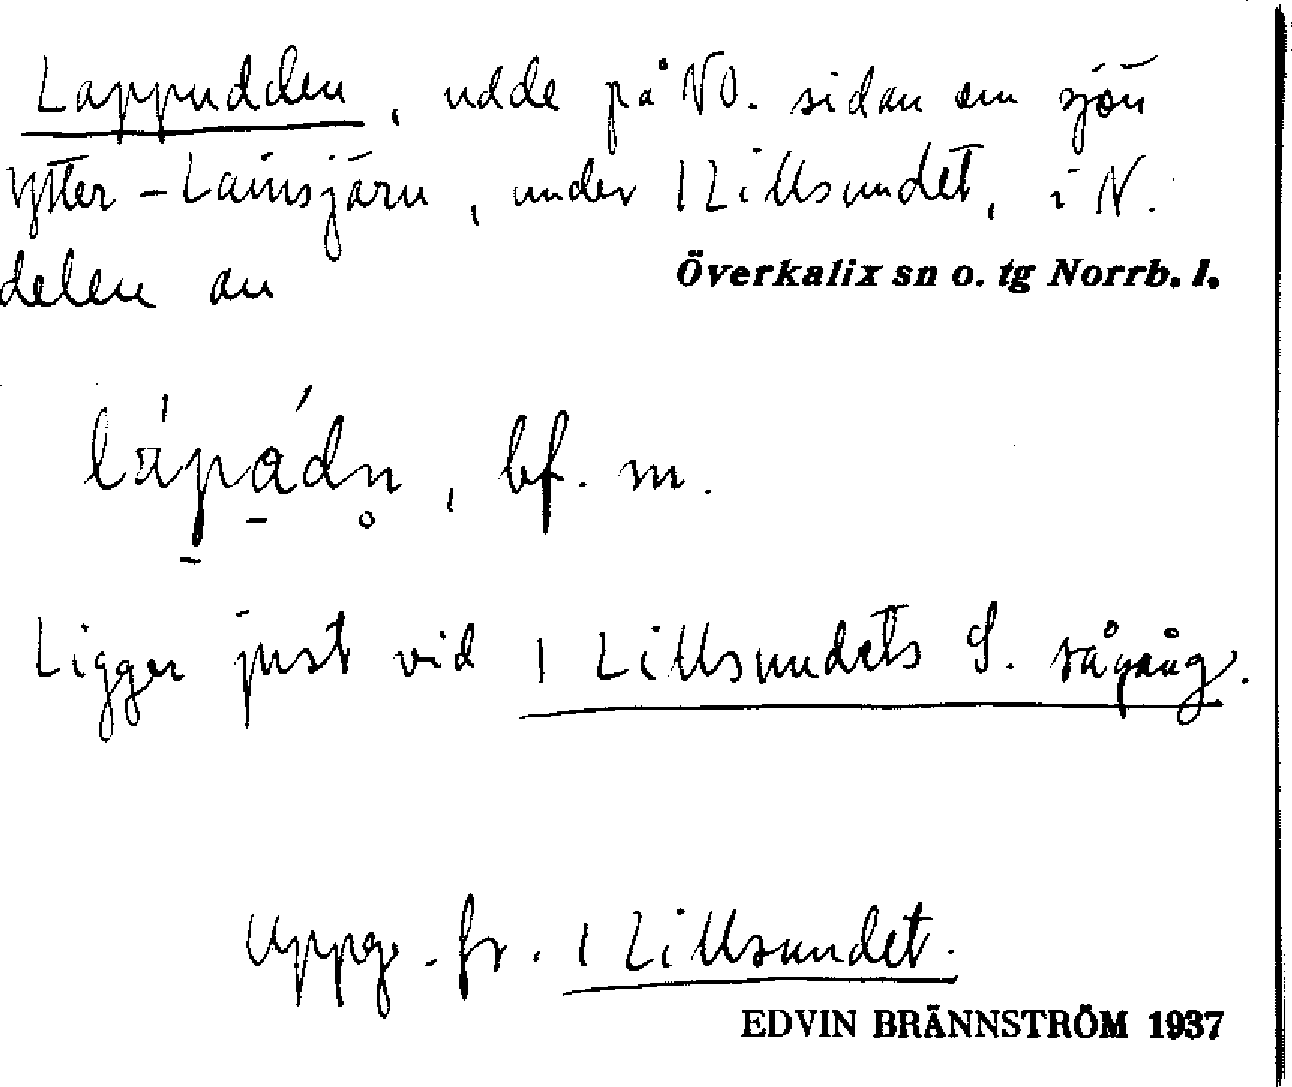 Lappudden, udde på NO. sidan av sjön
Ytter-Lainsjärv, under 1 Lillsundet, i N.
delen av
Överkalix sn o. tg Norrb. l.
bf. m.
Ligger just vid 1 Lillsundets S. rågång.
Uppg. fr. 1 Lillsundet.
EDVIN BRÄNNSTRÖM 1937